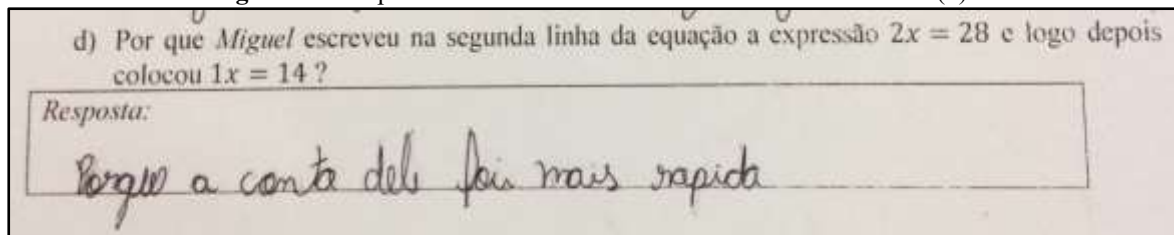 d) Por que Miguel escreveu na segunda linha da equação a expressão 2x = 28 e logo depois
colocou 1x = 14 ?
Resposta:
Porque a conta dele foi mais rapida